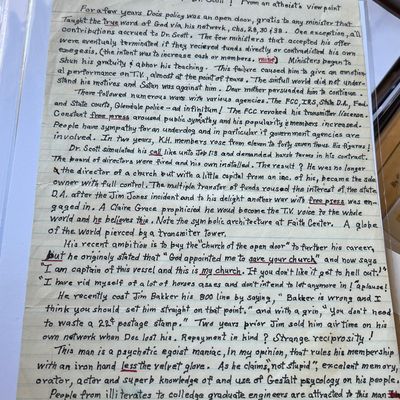 Scott ! From an atheist's view point
For a few years Docs policy was an open door, gratis to any minister that
Taught the true word of God via his network, chs, 28, 30 & 38. One exception, all
contributions accrued to Dr. Scott. The few ministers that accepted his offer
were eventually terminated if they recieved funds directly or contradicted his own
exegesis, (the intent was to increase cash or members. Ministers began to
Shun his gratuity & abhor his teaching. This failure caused him to give an emotion
al performance on T.V., almost at the point of tears. The sinfull world did not under-
stand his motives and Satan was against him. Dear mother persuaded him to continue.
There followed numerous wars with various agencies. The FCC, IRS, State D.A., Fed.
and State courts, Glendale police - ad infinitum! The FCC revoked his transmitter license.
Constant free press around public sympathy and his popularity & members increased.
People have sympathy for an underdog and in particular if government agencies are
involved. In two years, K.H. members rose from eleven to forty seven thous. His figures!
Dr. Scott simulated his call like unto Job 1:8 and demanded harsh terms in his contract.
The board of directors were fired and his own installed. The result? He was no longer
the director of a church but with a little capital from an inc. of his, became the sole
owner with full control. The multiple transfer of funds roused the interest of the state
D.A. after the Jim Jones incident and to his delight another war with free press was en-
gaged in. A Claire Grace prophicied he would become the T.V. voice to the whole
world and he believes this. Note the symbolic architecture at Faith Center. A globe
of the world pierced by a transmiter tower.
His recent ambition is to buy the "church of the open door" to further his career,
but he originaly stated that "God appointed me to save your church" and now says
"I am captain of this vessel and this is my church. If you don't like it get to hell out!"
"I have rid myself of a lot of horses asses and don't intend to let anymore in! aplause!
He recently cost Jim Bakker his 800 line by saying, "Bakker is wrong and I
think you should set him straight on that point." and with a grin, "you don't need
to waste a 22¢ postage stamp." Two years prior Jim sold him airtime on his
own network when Doc lost his. Repayment in kind? Strange reciprosity!
This man is a psychotic egoist maniac, In my opinion, that rules his membership
with an iron hand less the velvet glove. As he claims, "not stupid", excelent memory,
orator, actor and superb knowledge of and use of Gestalt psycology on his people.
People from illiterates to colledge graduate engineers are attracted to this man